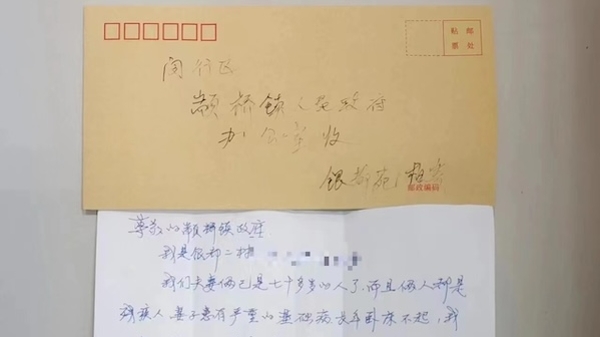 贴 邮
票 处
闵行区
颛桥镇人民政府
办公室收
银都苑
邮政编码
尊敬的颛桥镇政府
我是银都二村
我们夫妻俩已是七十多岁的人了，而且俩人都是
残疾人，妻子患有严重的基础病长年卧床不起，我